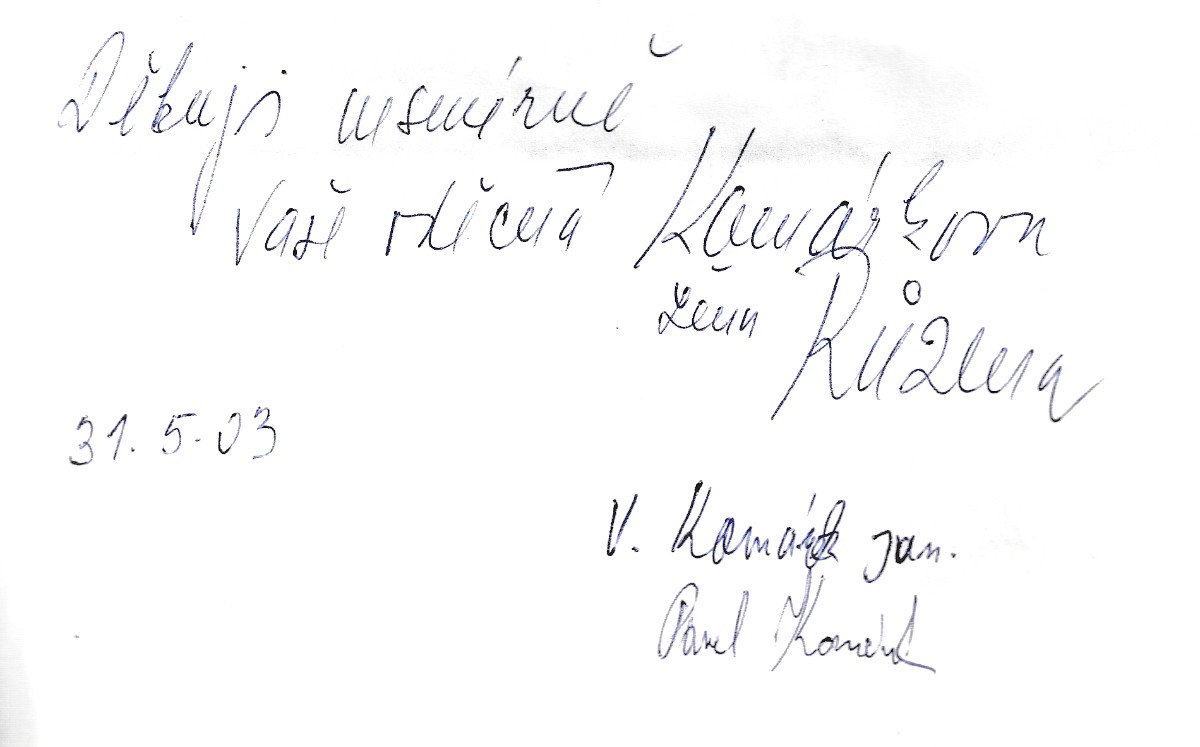 Děkuji nesmírně
Vaše vděčná Komárkova
žena Růžena
31. 5. 03
V. Komárek jun.
Pavel Komárek